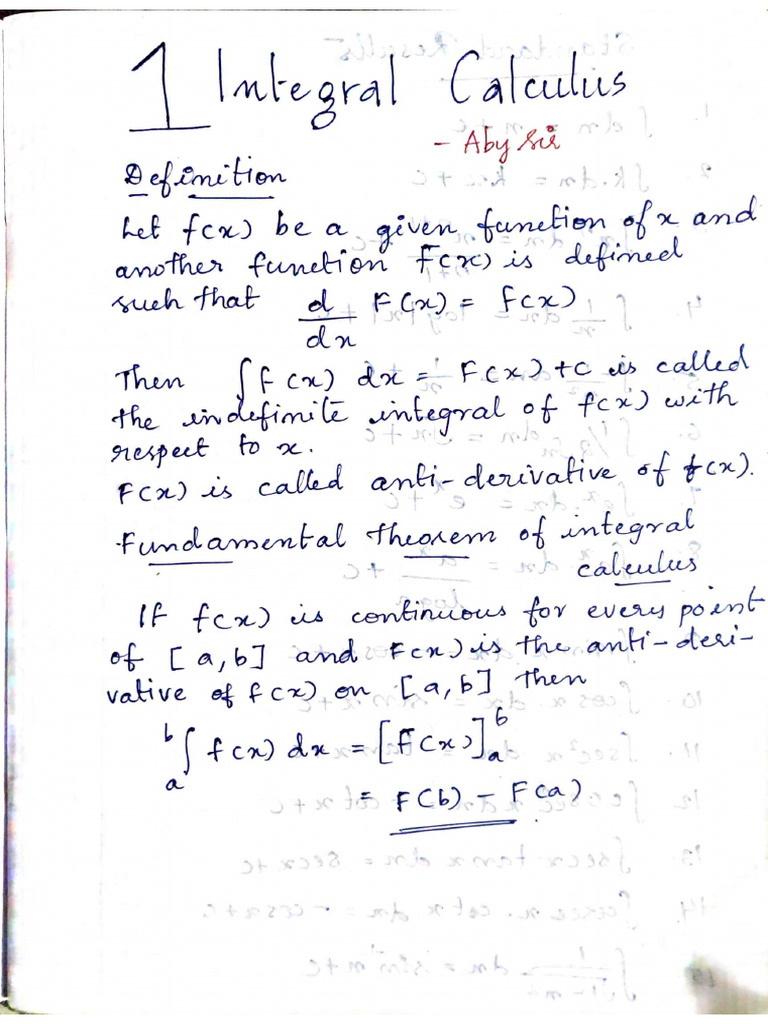 1 Integral Calculus
- Aby sir
Definition
Let f(x) be a given function of x and
another function F(x) is defined
such that d/dx F(x) = f(x)
Then ∫f(x) dx = F(x) + c is called
the indefinite integral of f(x) with
respect to x.
F(x) is called anti-derivative of f(x).
Fundamental theorem of integral
calculus
If f(x) is continuous for every point
of [a,b] and F(x) is the anti-deri-
vative of f(x) on [a,b] then
a∫b f(x) dx = [F(x)]ab
= F(b) - F(a)